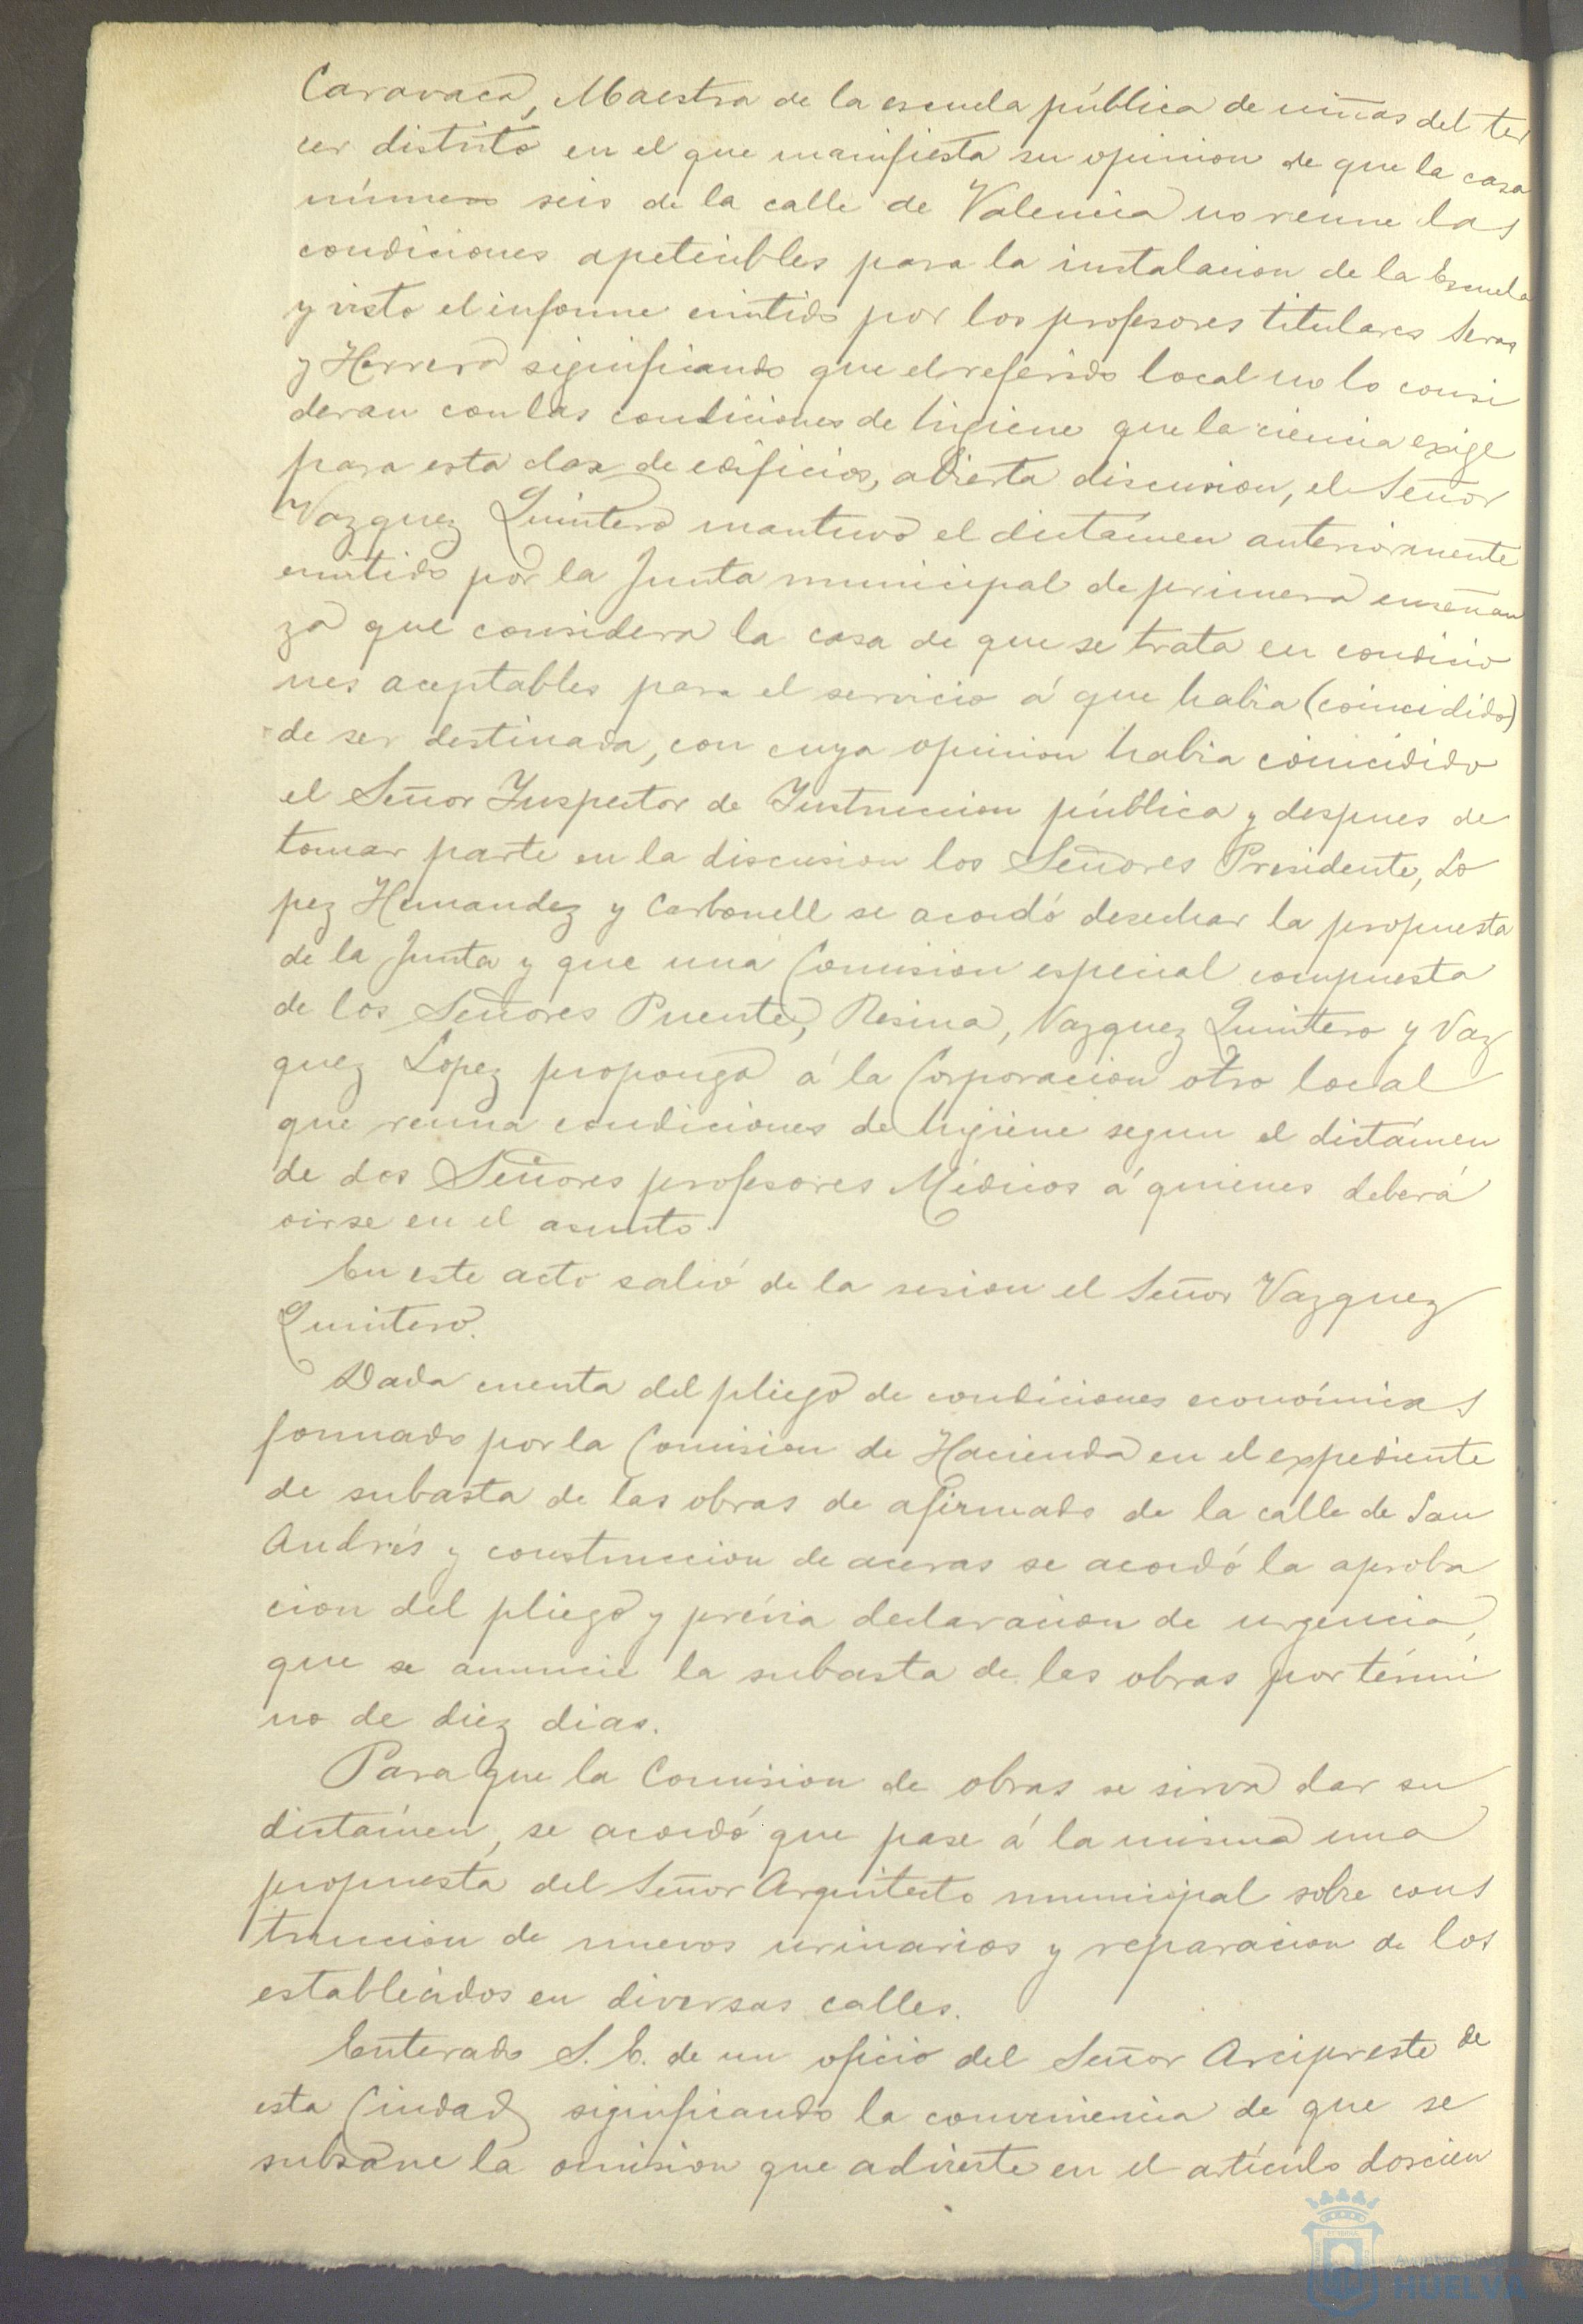 Caravaca, Maestra de la escuela pública de niñas del ter
cer distrito en el que manifiesta su opinion de que la casa
número seis de la calle de Valencia no reune las
condiciones apetecibles para la instalacion de la Escuela
y visto el informe emitido por los profesores titulares Seras
y Herrera significando que el referido local no lo consi
deran con las condiciones de higiene que la ciencia exige
para esta clase de edificios, abierta discusion, el Señor
Vazquez Quintero mantuvo el dictámen anteriormente
emitido por la Junta municipal de primera enseñan
za que considera la casa de que se trata en condicio
nes aceptables para el servicio á que habia (coincidido)
de ser destinada, con cuya opinion habia coincidido
el Señor Inspector de Instruccion pública y despues de
tomar parte en la discusion los Señores Presidente, Lo
pez Hernandez y Carbonell se acordó desechar la propuesta
de la Junta y que una Comision especial compuesta
de los Señores Puente, Resina, Vazquez Quintero y Vaz
quez Lopez proponga á la Corporacion otro local
que reuna condiciones de higiene segun el dictámen
de dos Señores profesores Médicos á quienes deberá
oirse en el asunto.
En este acto salió de la sesion el Señor Vazquez
Quintero.
Dada cuenta del pliego de condiciones económicas
formado por la Comision de Hacienda en el expediente
de subasta de las obras de afirmado de la calle de San
Andrés y construccion de aceras se acordó la aproba
cion del pliego y prévia declaracion de urgencia,
que se anuncie la subasta de las obras por térmi
no de diez dias.
Para que la Comision de obras se sirva dar su
dictámen, se acordó que pase á la misma una
propuesta del Señor Arquitecto municipal sobre cons
truccion de nuevos urinarios y reparacion de los
establecidos en diversas calles.
Enterado S.E. de un oficio del Señor Arcipreste de
esta Ciudad significando la conveniencia de que se
subsane la omision que advierte en el artículo doscien
HUELVA